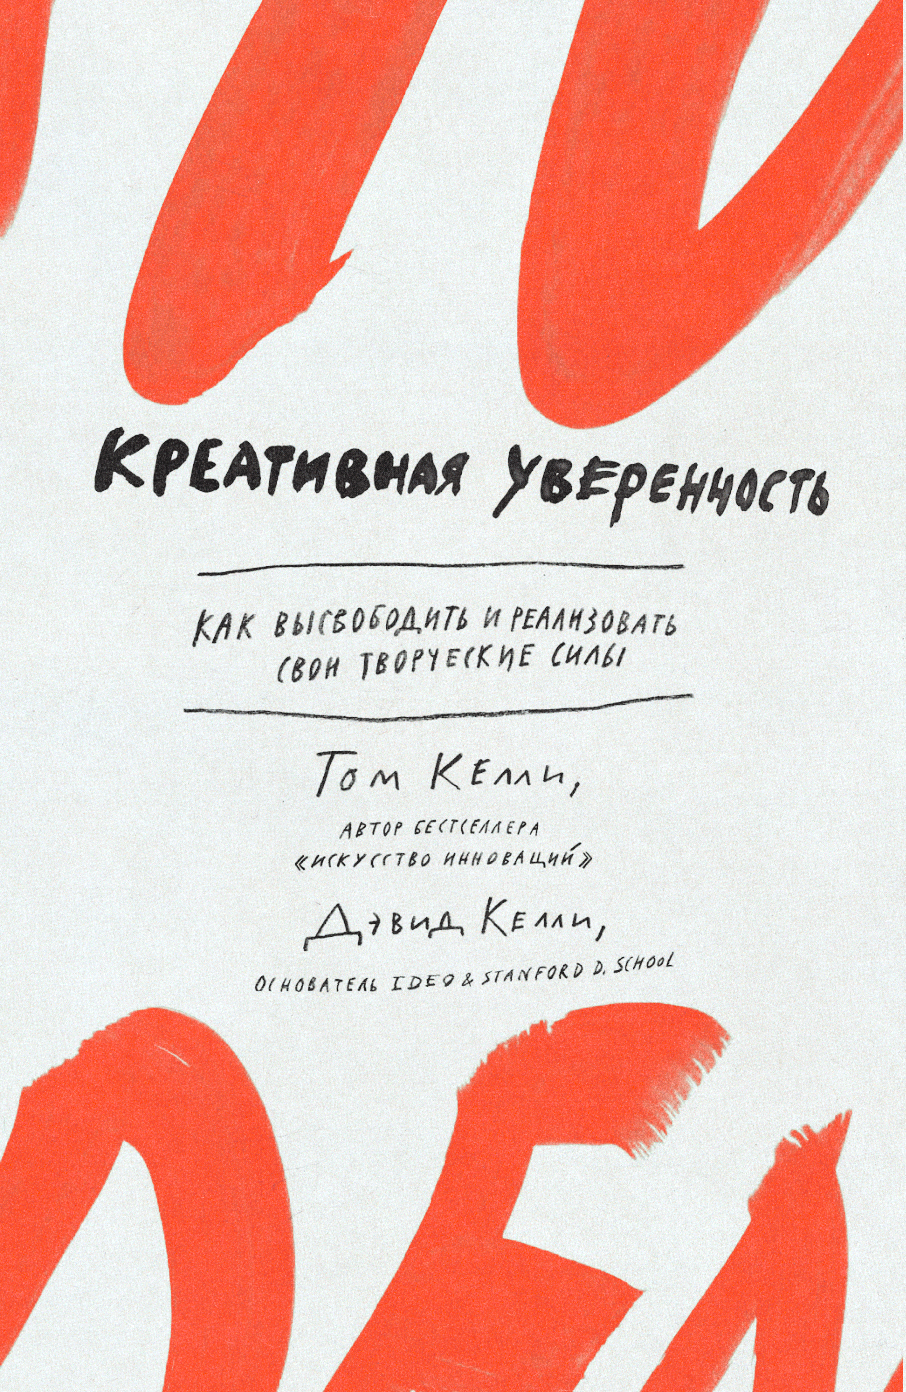 Креативная уверенность
Как высвободить и реализовать
свои творческие силы
Том Келли,
автор бестселлера
«Искусство инноваций»
Дэвид Келли,
основатель IDEO & Stanford d. school